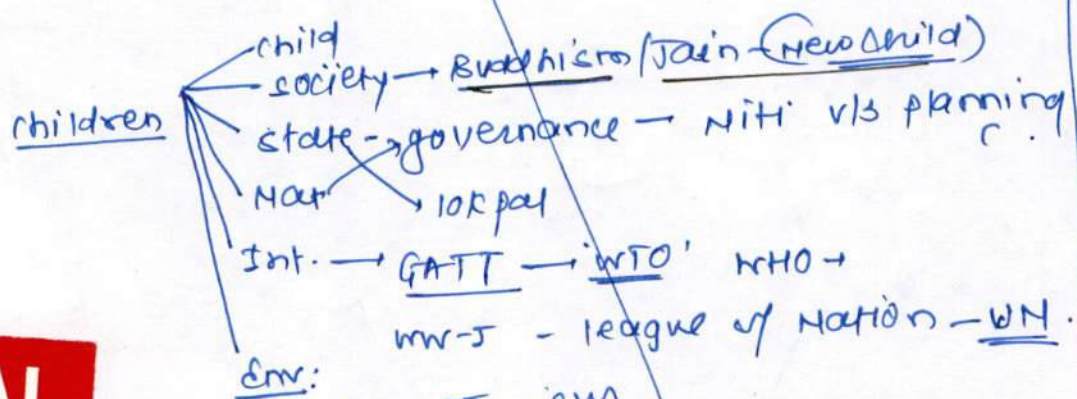 child
society → Buddhism / Jain - (New Child)
children
state → governance - NiTi v/s planning C.
Nat → lokpal
Int. → GATT → 'WTO' WHO →
WW-I - league of Nation - UN.
Env: